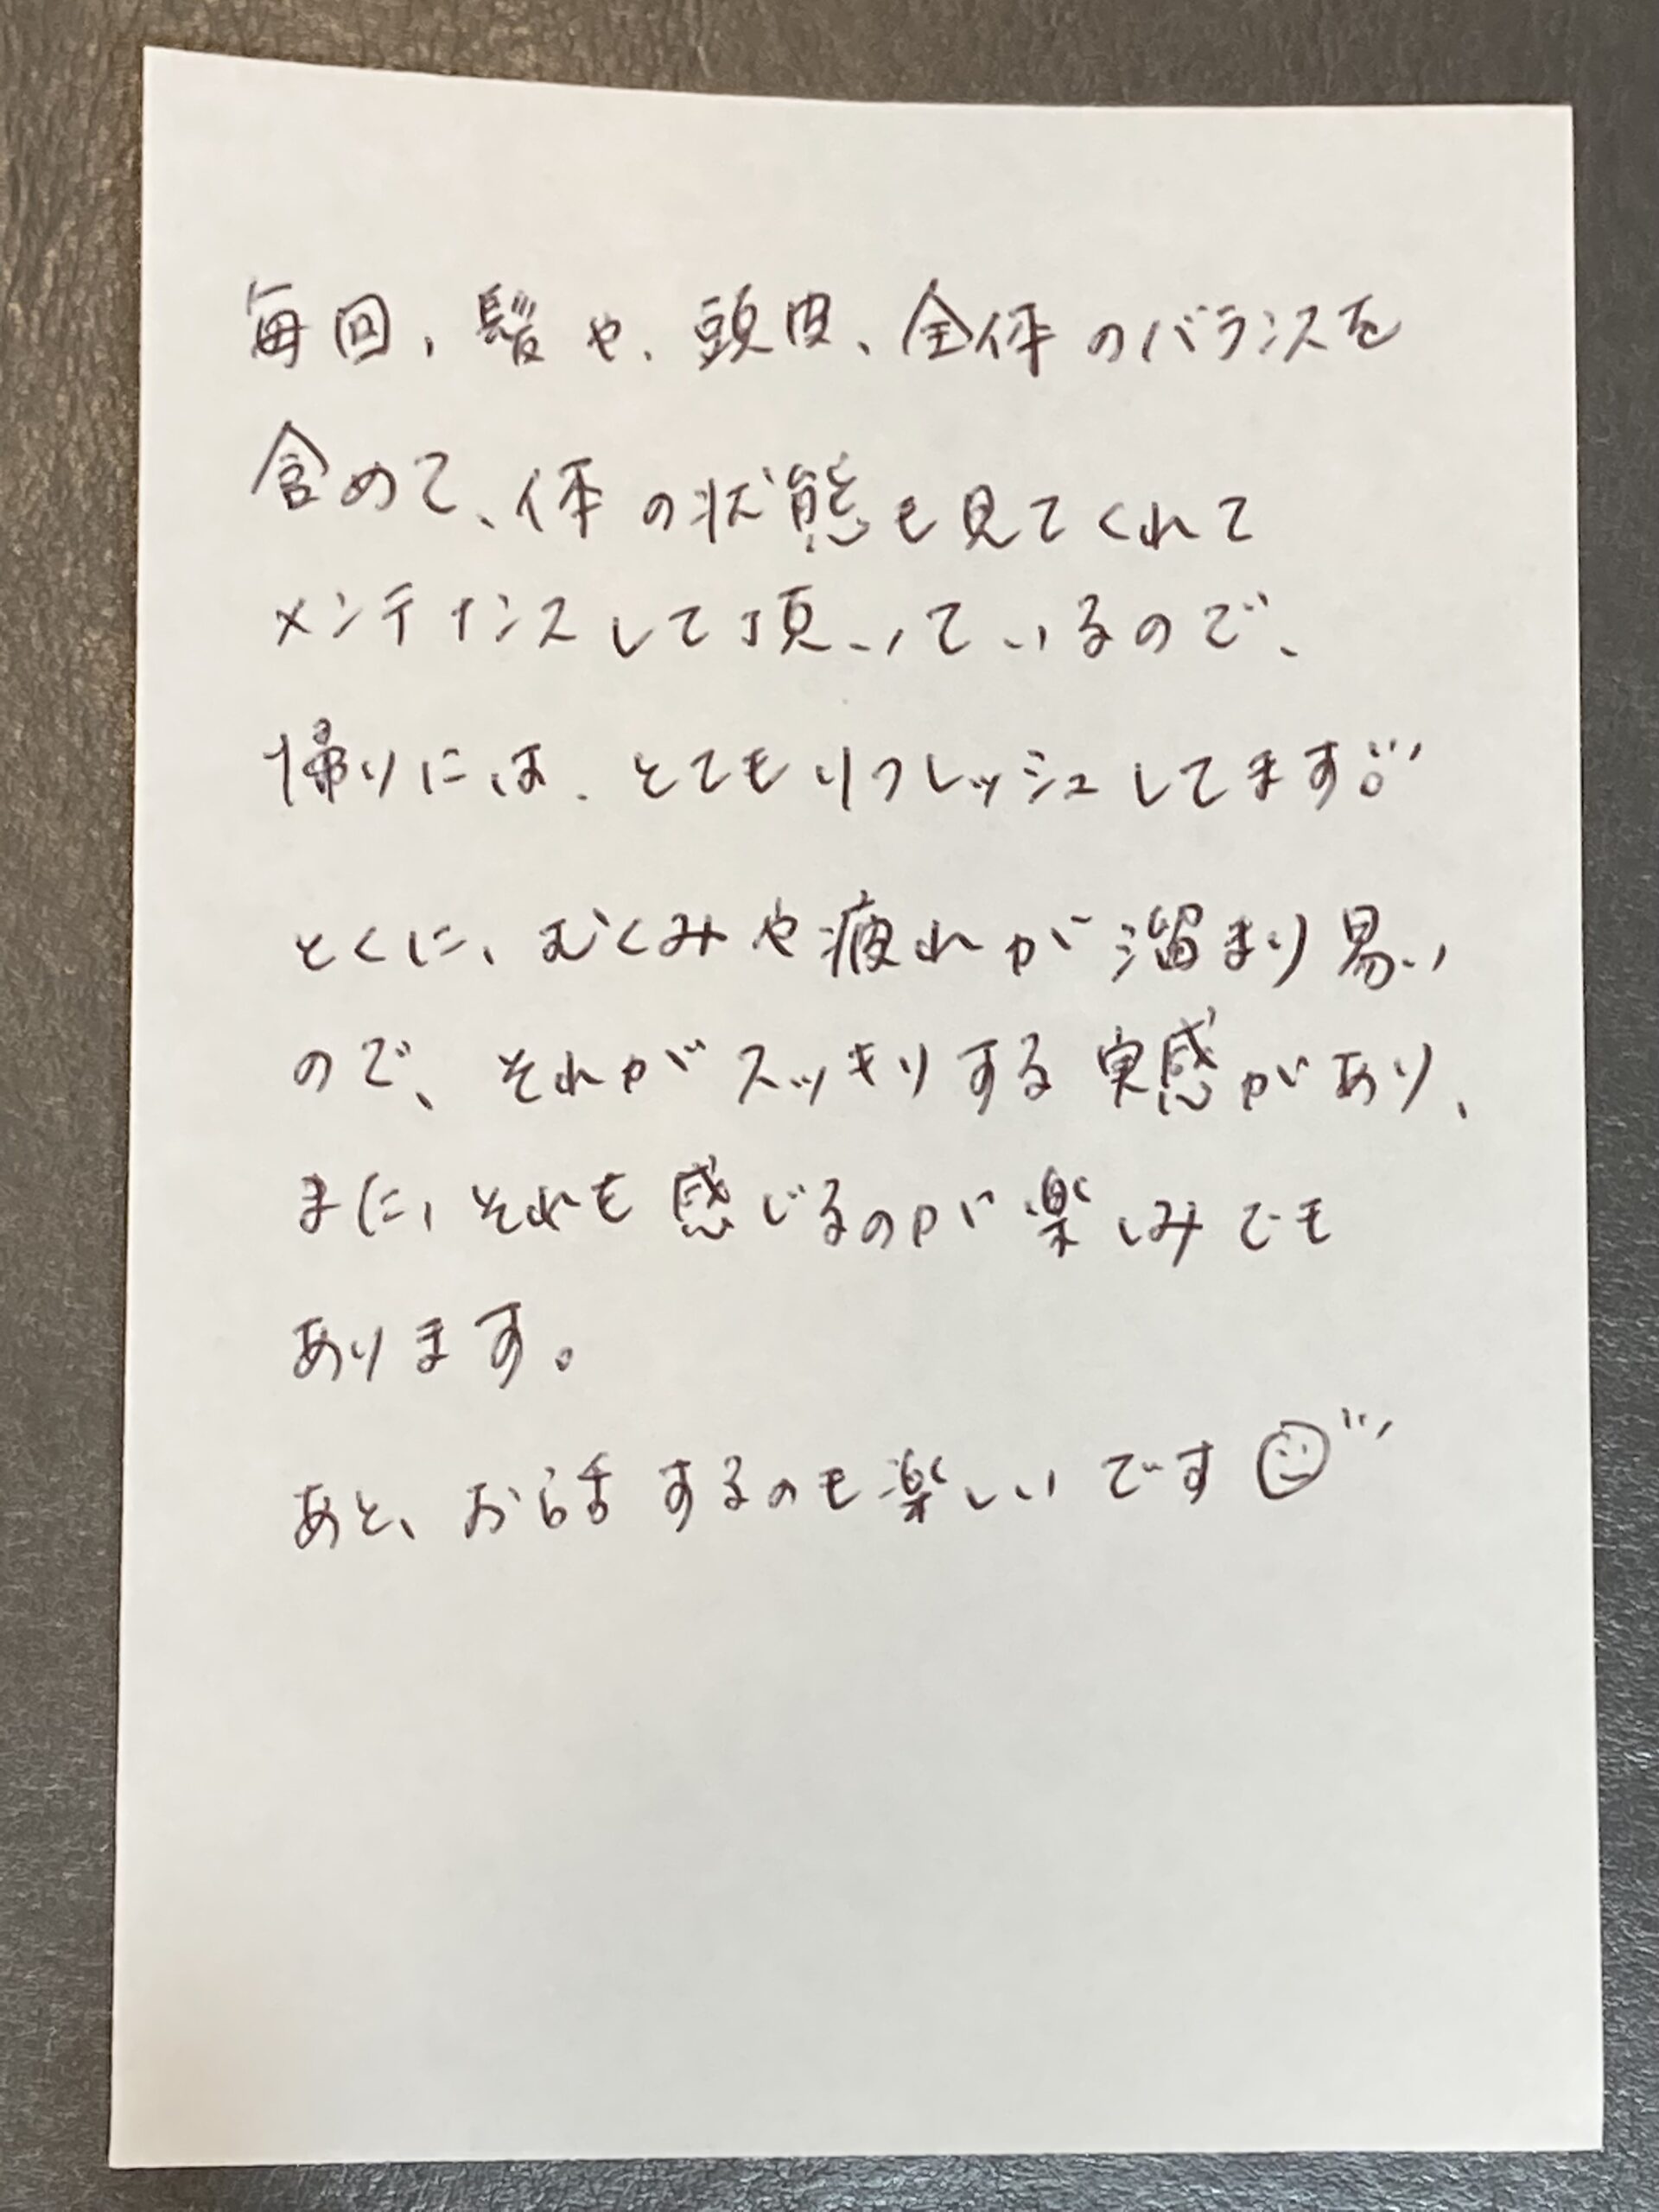 毎回、髪や、頭皮、全体のバランスを
含めて、体の状態も見てくれて
メンテナンスして頂いているので、
帰りには、とてもリフレッシュしてます。
とくに、むくみや疲れが溜まり易い
ので、それがスッキリする実感があり、
また、それを感じるのが楽しみでも
あります。
あと、お話するのも楽しいです